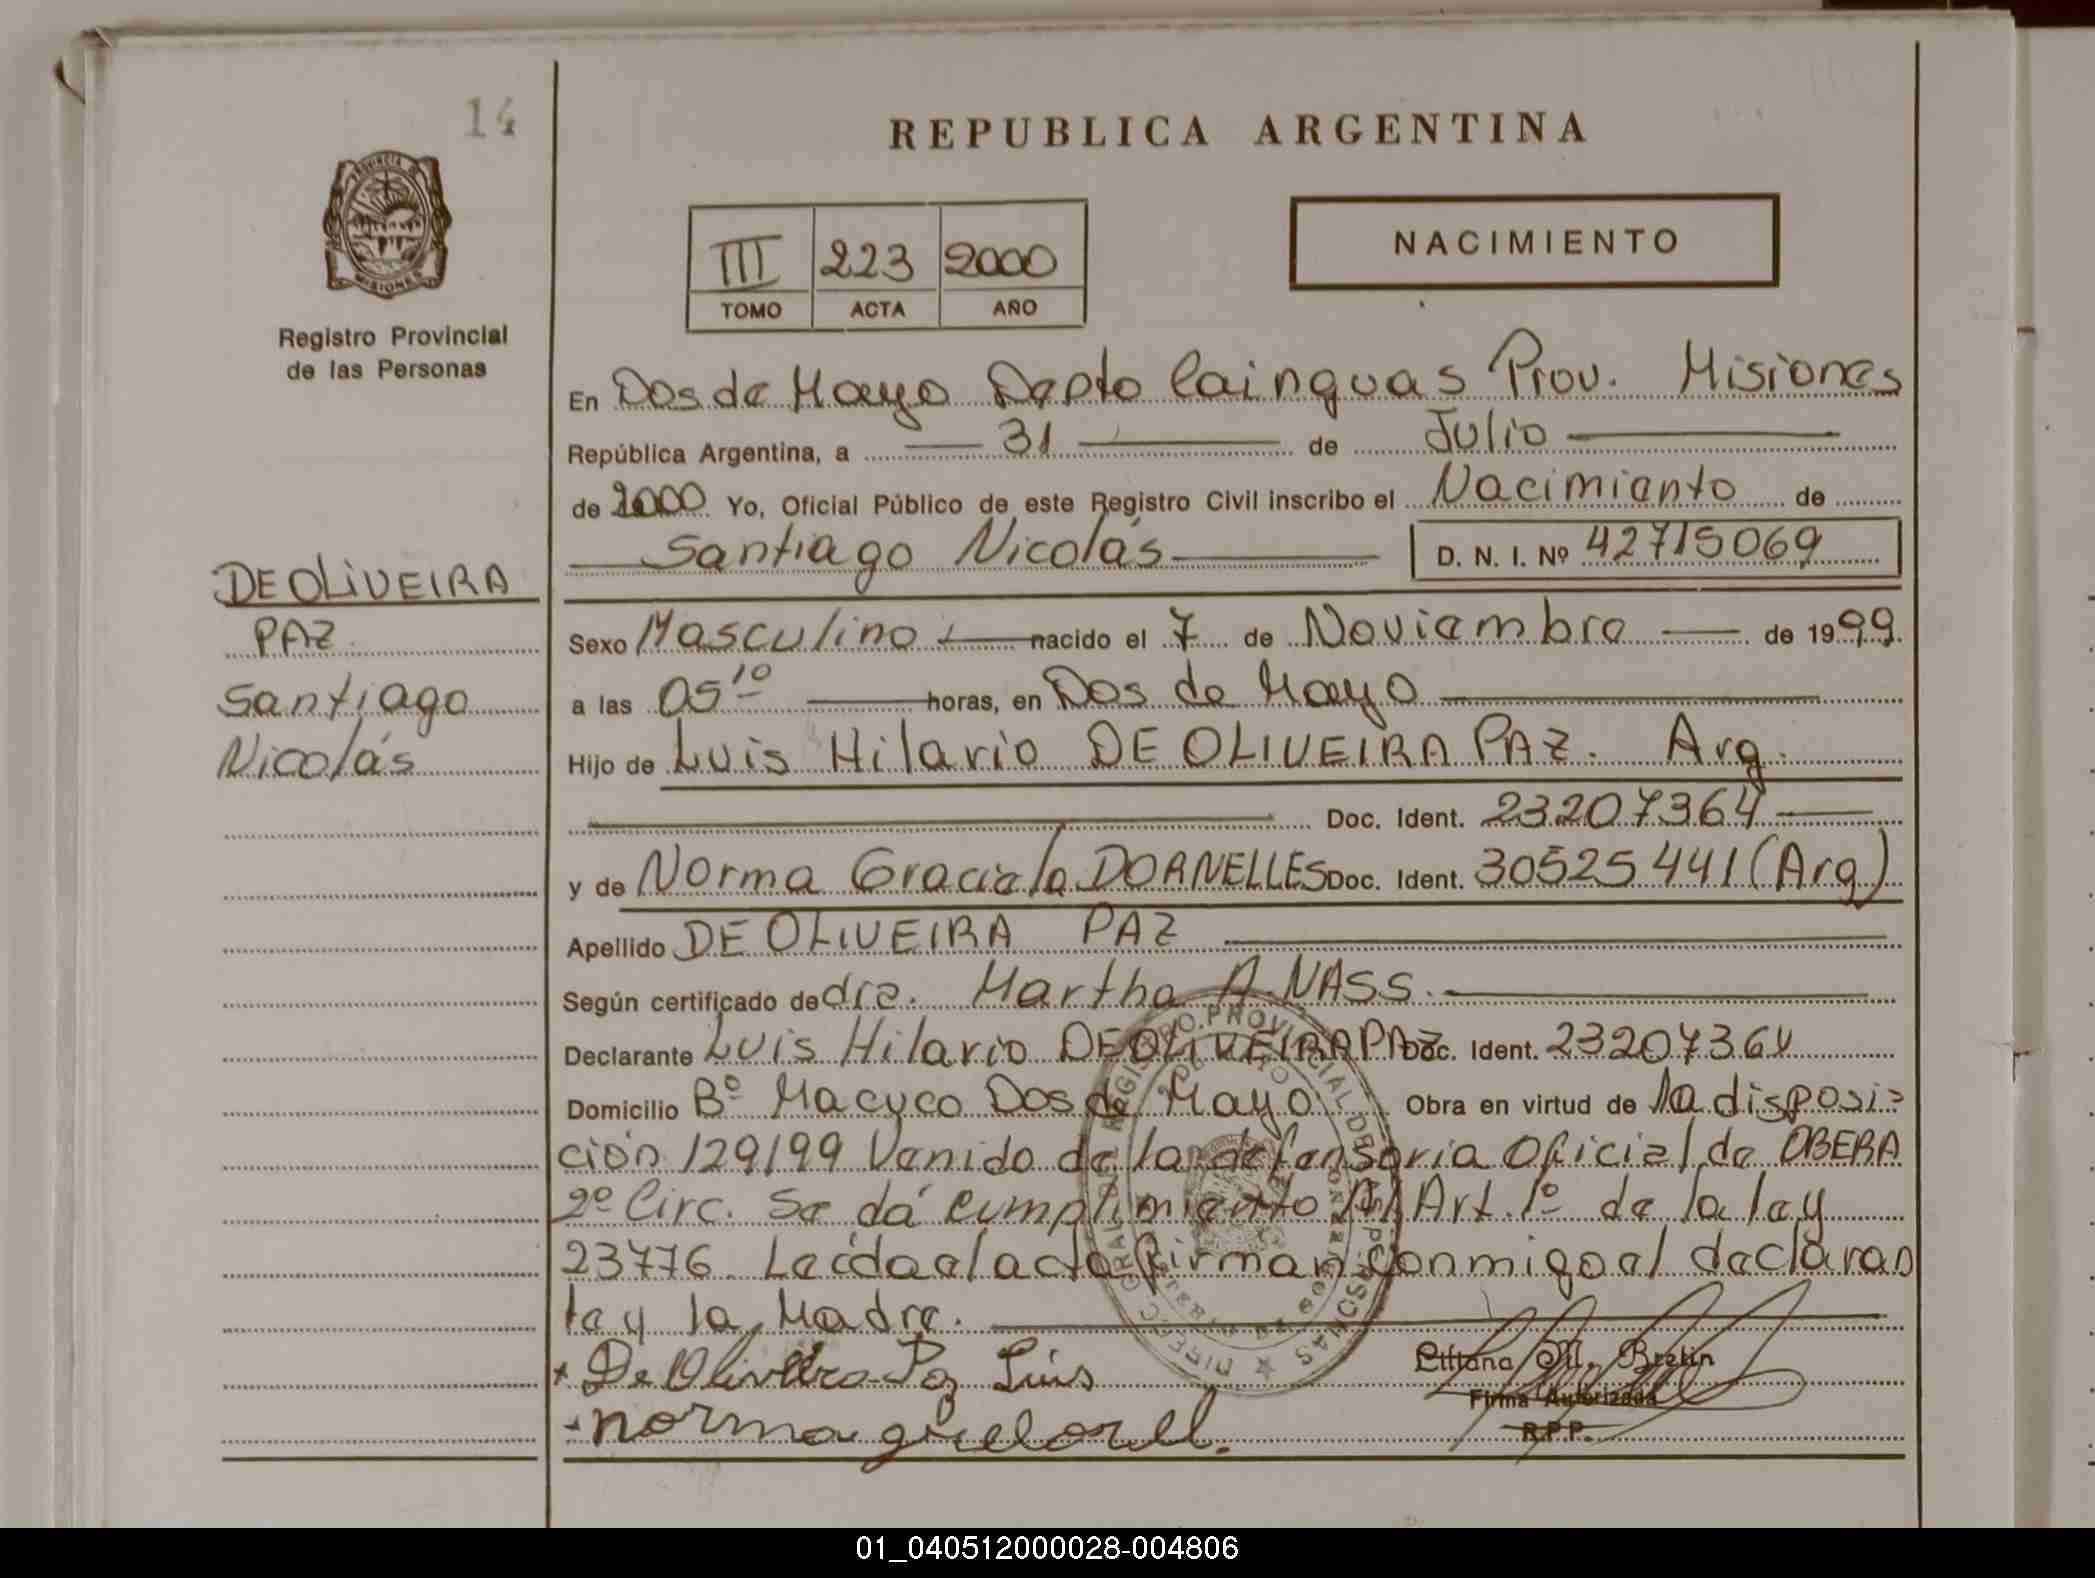 14
REPUBLICA ARGENTINA
NACIMIENTO
III 223 2000
TOMO ACTA AÑO
PROVINCIA D MISIONES
Registro Provincial
de las Personas
En Dos de Mayo Depto Cainguas Prov. Misiones
República Argentina, a 31 de Julio
de 2000 Yo, Oficial Público de este Registro Civil inscribo el Nacimiento de
Santiago Nicolás D. N. I. Nº 42715069
DE OLIVEIRA
PAZ
Santiago
Nicolás
Sexo Masculino nacido el 7 de Noviembre de 1999.
a las 05 10 horas, en Dos de Mayo
Hijo de Luis Hilario DE OLIVEIRA PAZ. Arg.
Doc. Ident. 23207364
y de Norma Graciela DORNELLES Doc. Ident. 30525441 (Arg)
Apellido DE OLIVEIRA PAZ
Según certificado de dra. Martha A. NASS.
Declarante Luis Hilario DE OLIVEIRA PAZ Doc. Ident. 23207364
Domicilio Bº Macuco Dos de Mayo Obra en virtud de la disposi=
ción 129/99 Venido de la defensoria Oficial de OBERA
2º Circ. Se dá cumplimiento Al Art. 1º de la ley
23776. Leída el acta firman conmigo el declaran
te y la Madre.
De Oliveira Paz Luis
Liliana M. Bretin
Firma Autorizada
R.P.P.
norma
01_040512000028-004806